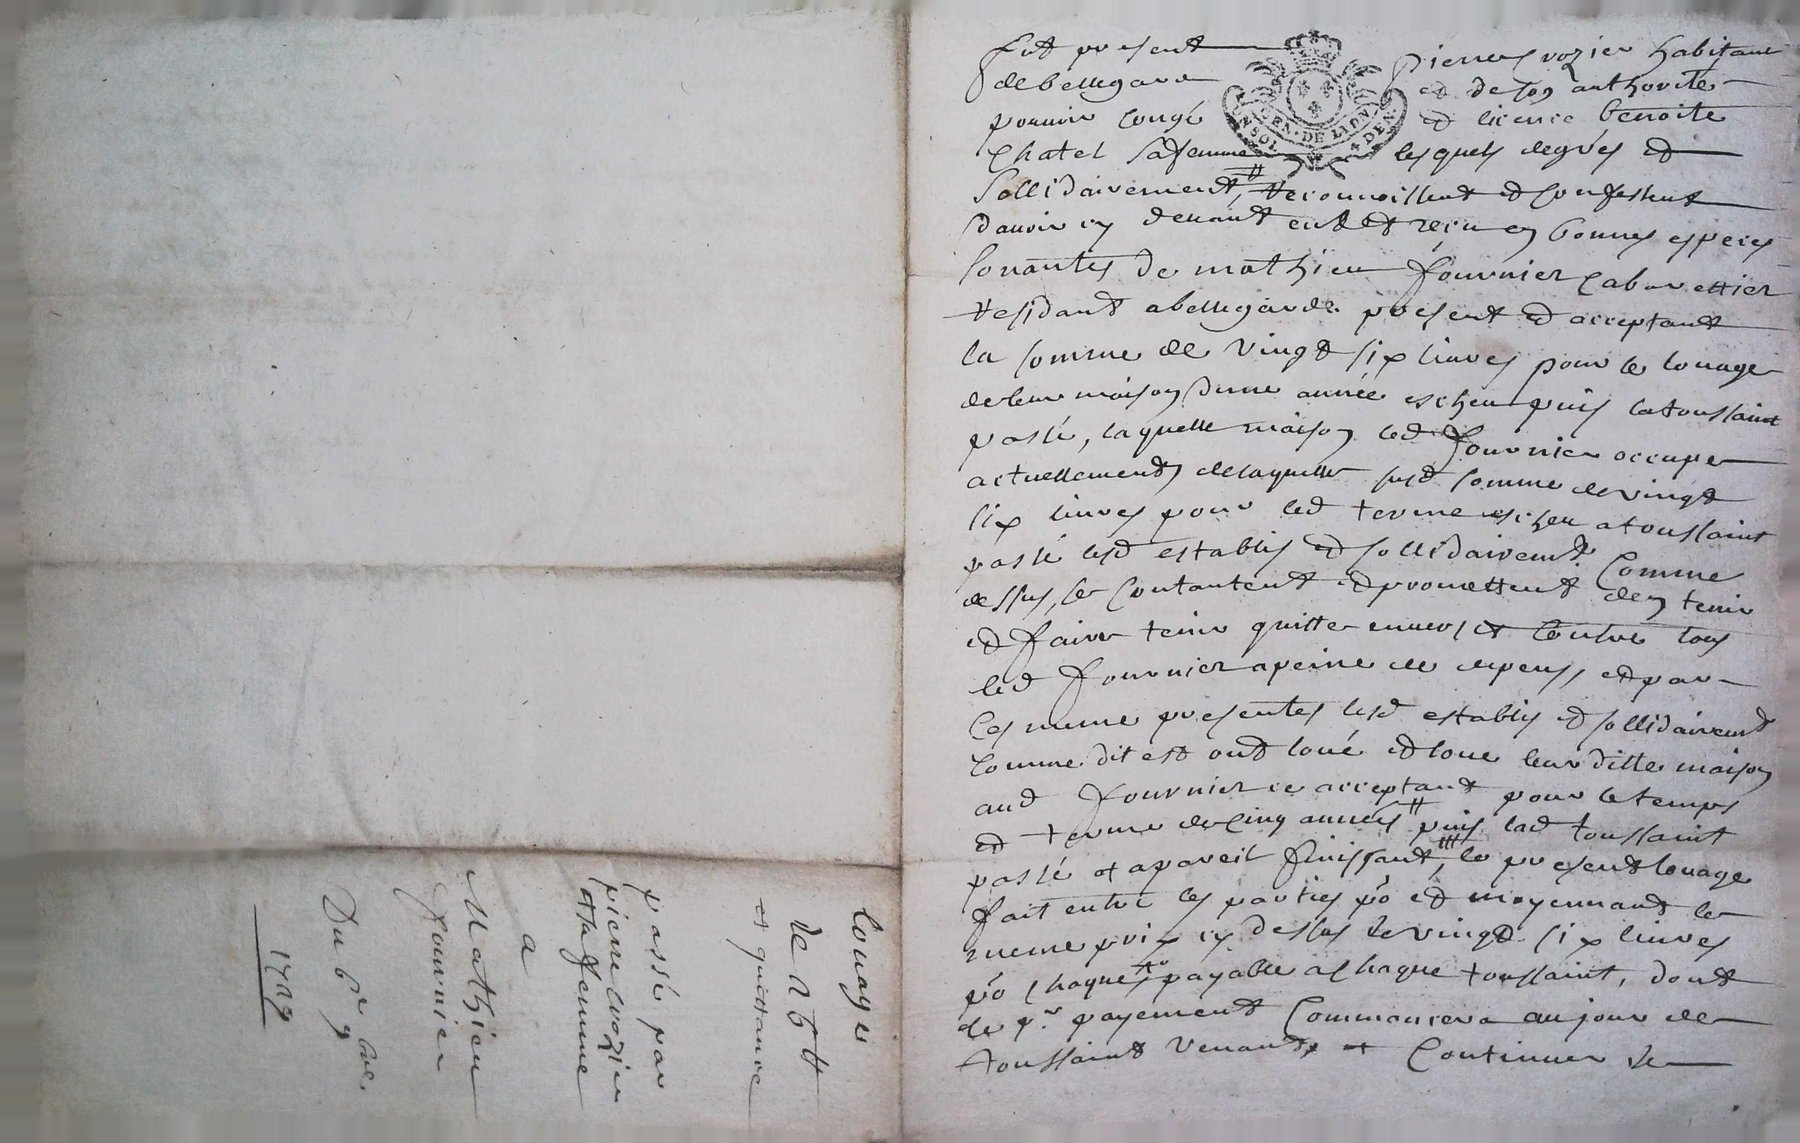 louage
de 26 tt
et quittance
passé par
pierre crozier
et sa femme
a
Mathieu
fournier
Du 6e 9bre
1729
fut present pierre crozier habitant
de bellegarde et de son authorité
pouuoir congé et licence benoite
chatel sa femme lesquels de gré et
sollidairement, reconnoissent et confessent
dauoir cy deuant eut et reçu en bonnes especes
sonantes de mathieu fournier cabarettier
residant a bellegarde present et acceptant
la somme de vingt six liures pour le louage
de leur maison dune année escheu puis la toussaint
passé, laquelle maison led fournier occupe
actuellement, de laquelle susd somme de vingt
six liures pour led terme escheu a toussaint
passé lesd establis et sollidairemt. Comme
dessus, se contantent et promettent den tenir
et faire tenir quitte enuers et contre tous
led fournier a peine de depens, et par
ces meme presentes lesd establis et sollidairemt
comme dit est ont loué et loue leur ditte maison
aud fournier ce acceptant pour le temps
et terme de cinq années puis lad toussaint
passé et a pareil finissant, le present louage
fait entre les parties po et moyennant le
meme prix cy dessus de vingt six liures
po chaque payable a chaque toussaint, dont
le pr payement Commancera au jour de
toussaint venant et Continuer de
GEN. DE LION